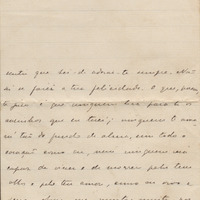 muito que hei-de adorar-te sempre. Não
sei se farei a tua felicidade. O que,
juro é que ninguem terá para ti os
carinhos que eu terei; ninguem t'ama-
rá tão do fundo d'alma, com todo o
coração como eu, nem ninguem será
capaz de viver e de morrer pelo teu
olhar e pelo teu amor, como eu vivo e